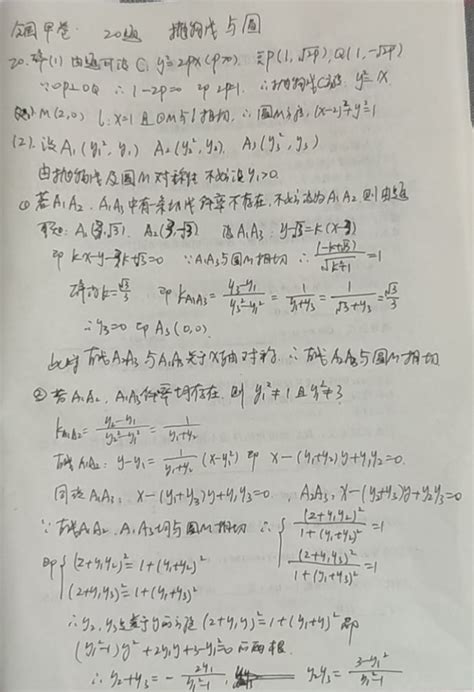 全国甲卷 20题 抛物线与圆
20.解(1) 由题可设 C: y²=2px(p>0). 则P(1,√2p), Q(1,-√2p)
∵OP⊥OQ ∴1-2p=0 即 2p=1. ∴抛物线C方程 y²=x.
M(2,0) l:x=1且⊙M与l相切, ∴圆M方程, (x-2)²+y²=1
(2). 设A₁(y₁²,y₁) A₂(y₂²,y₂). A₃(y₃²,y₃)
由抛物线及圆M对称性 不妨设y₁>0.
① 若A₁A₂, A₁A₃中有一条切线斜率不存在, 不妨设为A₁A₂ 则由题
A₁(3,√3). A₂(3,-√3) 设A₁A₃: y-√3=k(x-3)
即 kx-y-3k+√3=0 ∵A₁A₃与圆M相切 ∴ |-k+√3|/√(k²+1)=1
解得k=√3/3 即 k_{A₁A₃}=(y₃-y₁)/(y₃²-y₁²)=1/(y₁+y₃)=1/(√3+y₃)=√3/3
∴y₃=0 即 A₃(0,0).
此时 直线A₂A₃与A₁A₃关于x轴对称, ∴直线A₂A₃与圆M相切
② 若A₁A₂, A₁A₃斜率均存在, 则 y₁²≠1且y₁²≠3
k_{A₁A₂}=(y₂-y₁)/(y₂²-y₁²)=1/(y₁+y₂)
直线A₁A₂: y-y₁=1/(y₁+y₂)(x-y₁²) 即 x-(y₁+y₂)y+y₁y₂=0.
同理A₁A₃: x-(y₁+y₃)y+y₁y₃=0, A₂A₃: x-(y₂+y₃)y+y₂y₃=0
∵直线A₁A₂, A₁A₃均与圆M相切 ∴ { (2+y₁y₂)²/(1+(y₁+y₂)²)=1
(2+y₁y₃)²/(1+(y₁+y₃)²)=1
即 { (2+y₁y₂)²=1+(y₁+y₂)²
(2+y₁y₃)²=1+(y₁+y₃)²
∴y₂, y₃是关于y的方程 (2+y₁y)²=1+(y₁+y)² 即
(y₁²-1)y²+2y₁y+3-y₁²=0 的两根.
∴y₂+y₃=-2y₁/(y₁²-1), y₂y₃=(3-y₁²)/(y₁²-1)